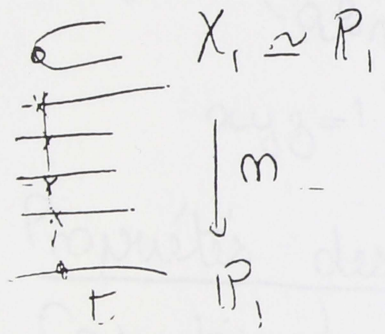 X₁ ≃ P₁
m
t P₁